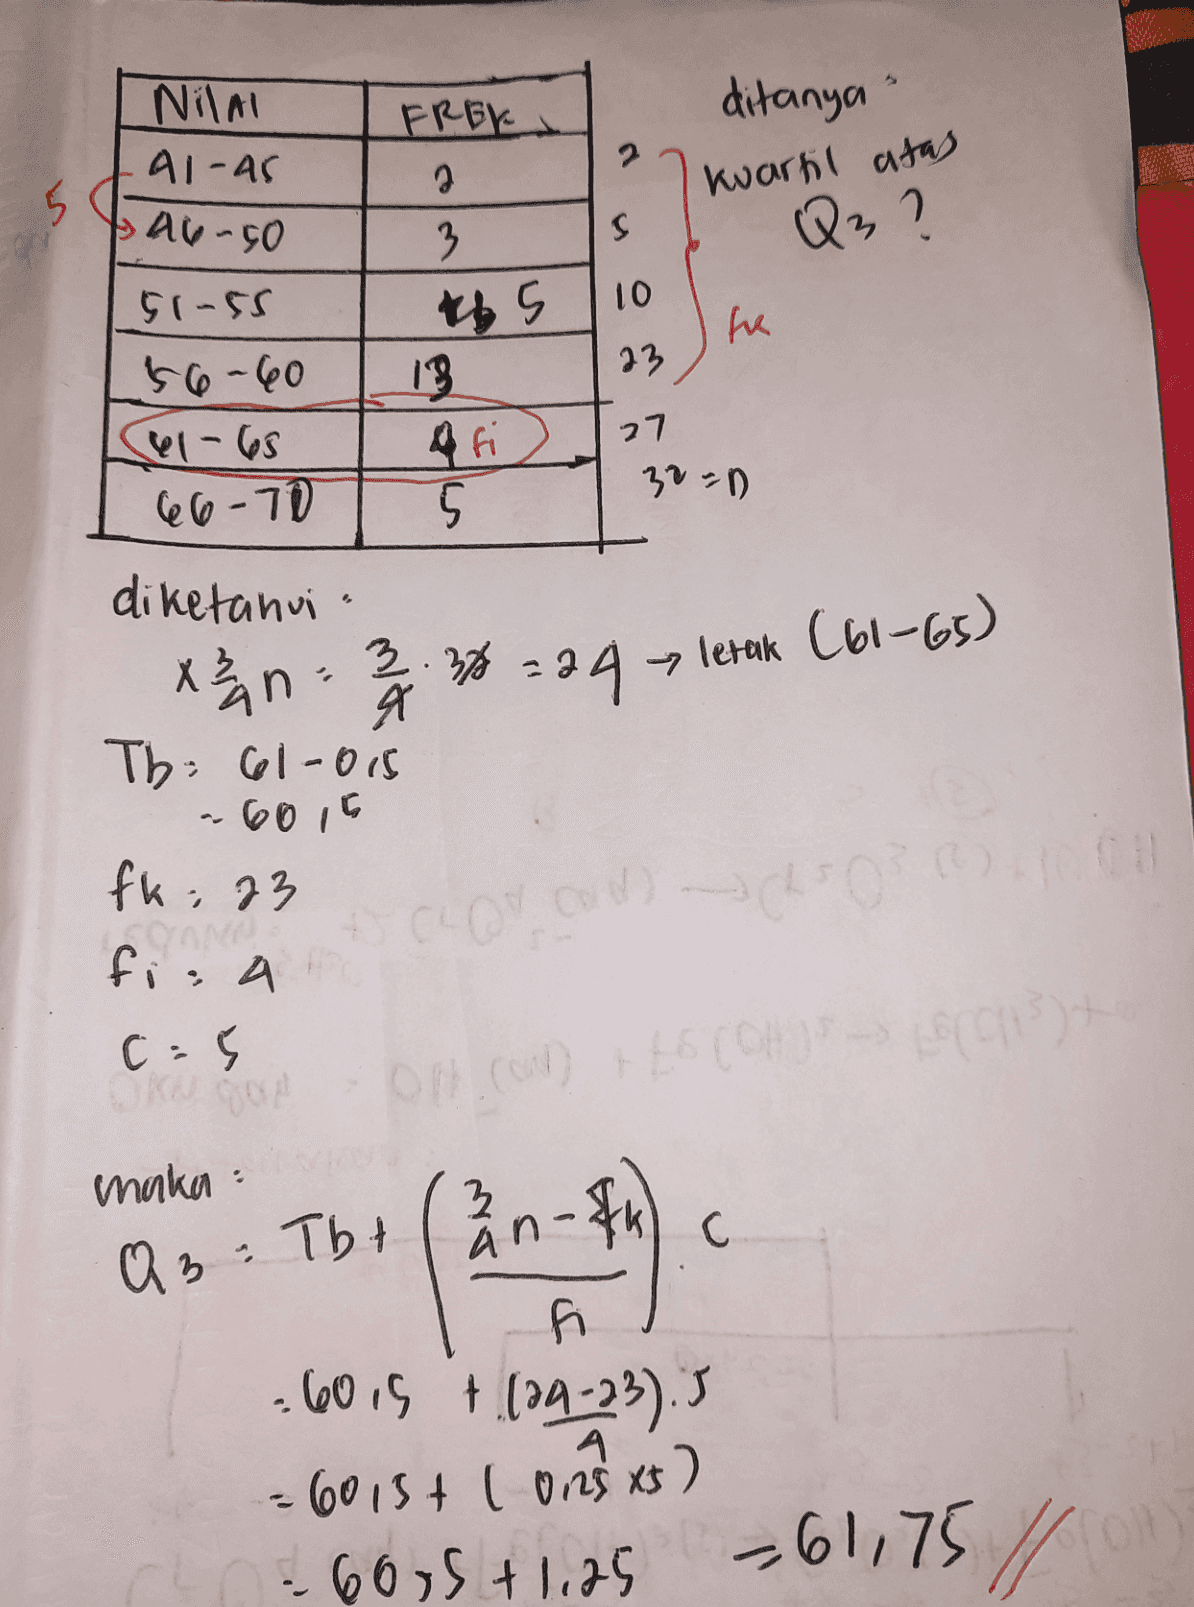 Nilai FREK
41-45 2 2
46-50 3 5
51-55 5 10
56-60 13 23
61-65 4 fi 27
66-70 5 32 = n
5
fk
ditanya :
kuartil atas
Q3 ?
diketahui :
x 3/4 n = 3/4 . 32 = 24 → letak (61-65)
Tb = 61-0,5
= 60,5
fk = 23
fi = 4
C = 5
maka :
Q3 = Tb + (3/4 n - fk / fi) . C
= 60,5 + (24-23 / 4) . 5
= 60,5 + (0,25 x5)
= 60,5 + 1,25 = 61,75 //